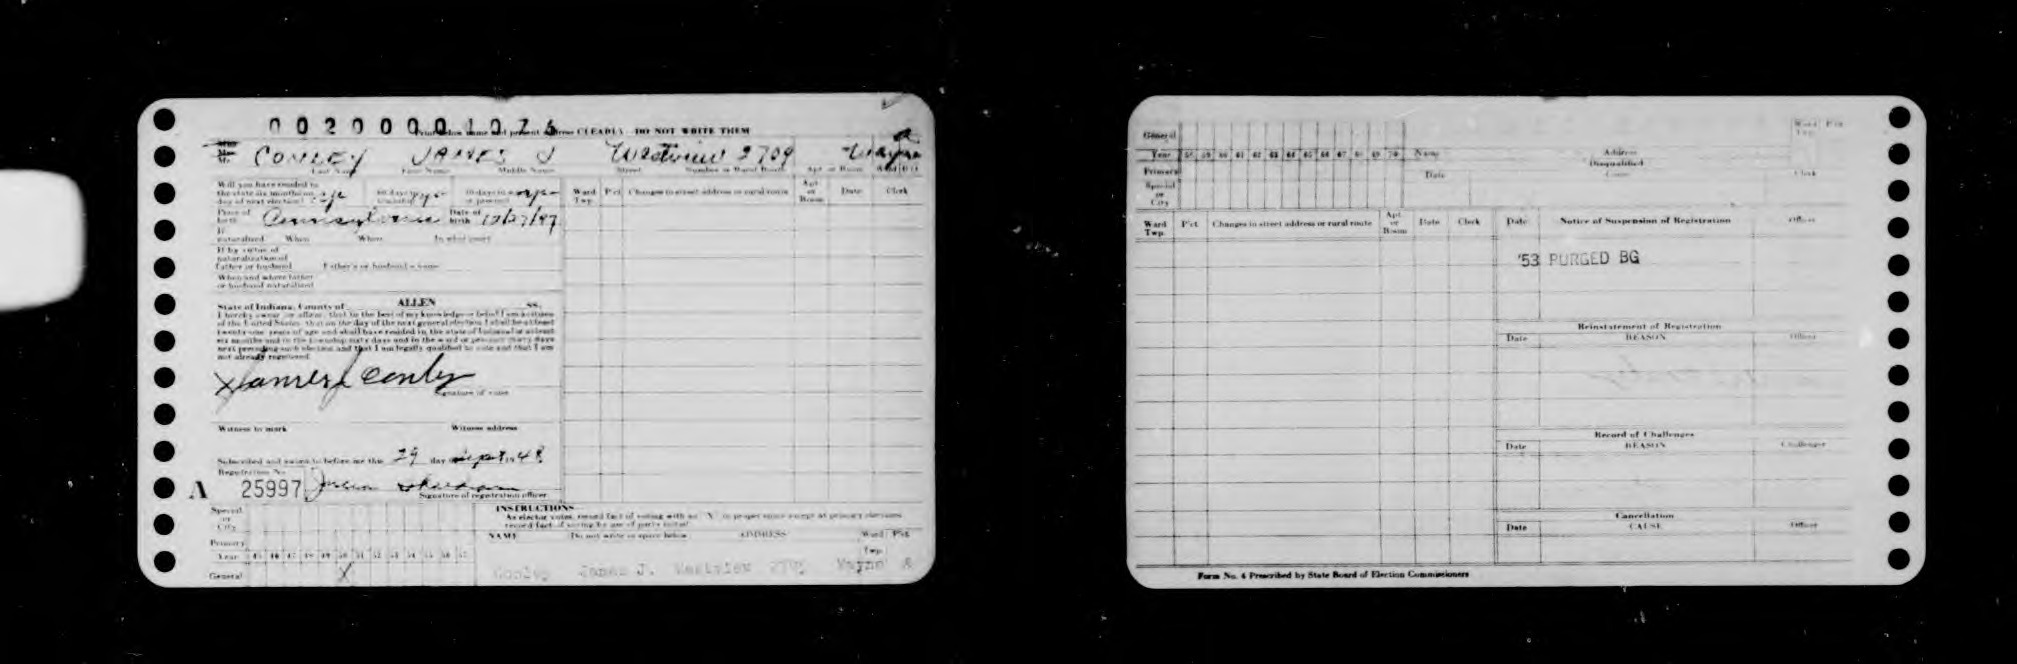 00200001076
Print below name and present address CLEARLY DO NOT WRITE THEM
Mr. CONLEY JAMES J Westview 2709 Wayne
Last Name First Name Middle Name Street Number or Rural Route Apt. or Room
Will you have resided in
the state six months on yes 60 days in yes 30 days in yes
day of next election? township or precinct
Ward Twp. Pct. Changes in street address or rural route Apt. or Room Date Clerk
Place of birth Pennsylvania Date of birth 12/27/97
If naturalized When Where In what court
If by virtue of
naturalization of
father or husband Father's or husband's name
When and where father
or husband naturalized
State of Indiana, County of ALLEN SS.
I hereby swear or affirm, that to the best of my knowledge or belief I am a citizen
of the United States, that on the day of the next general election I shall be at least
twenty-one years of age and shall have resided in the state of Indiana at least
six months and in the township sixty days and in the ward or precinct thirty days
next preceding such election and that I am legally qualified to vote and that I am
not already registered
X James J Conley
Signature of voter
Witness to mark Witness address
Subscribed and sworn to before me this 29 day Sept 1948
Registration No.
A 25997
Signature of registration officer
Special or City
Primary
Year 45 46 47 48 49 50 51 52 53 54 55 56 57
General X
INSTRUCTIONS
As elector votes, record fact of voting with an "X" in proper space except at primary elections
record fact of voting by use of party initial
NAME Do not write in space below ADDRESS Ward Pct.
Twp.
Conley James J. Westview 2709 Wayne 8
General
Year 58 59 60 61 62 63 64 65 66 67 68 69 70 Name Address
Disqualified
Primary Date Cause Clerk
Special
or
City
Ward Pct.
Twp.
Ward Twp. Pct. Changes in street address or rural route Apt. or Room Date Clerk
Date Notice of Suspension of Registration Officer
'53 PURGED BG
Reinstatement of Registration
Date REASON Officer
Record of Challenges
Date REASON Challenger
Cancellation
Date CAUSE Officer
Form No. 4 Prescribed by State Board of Election Commissioners